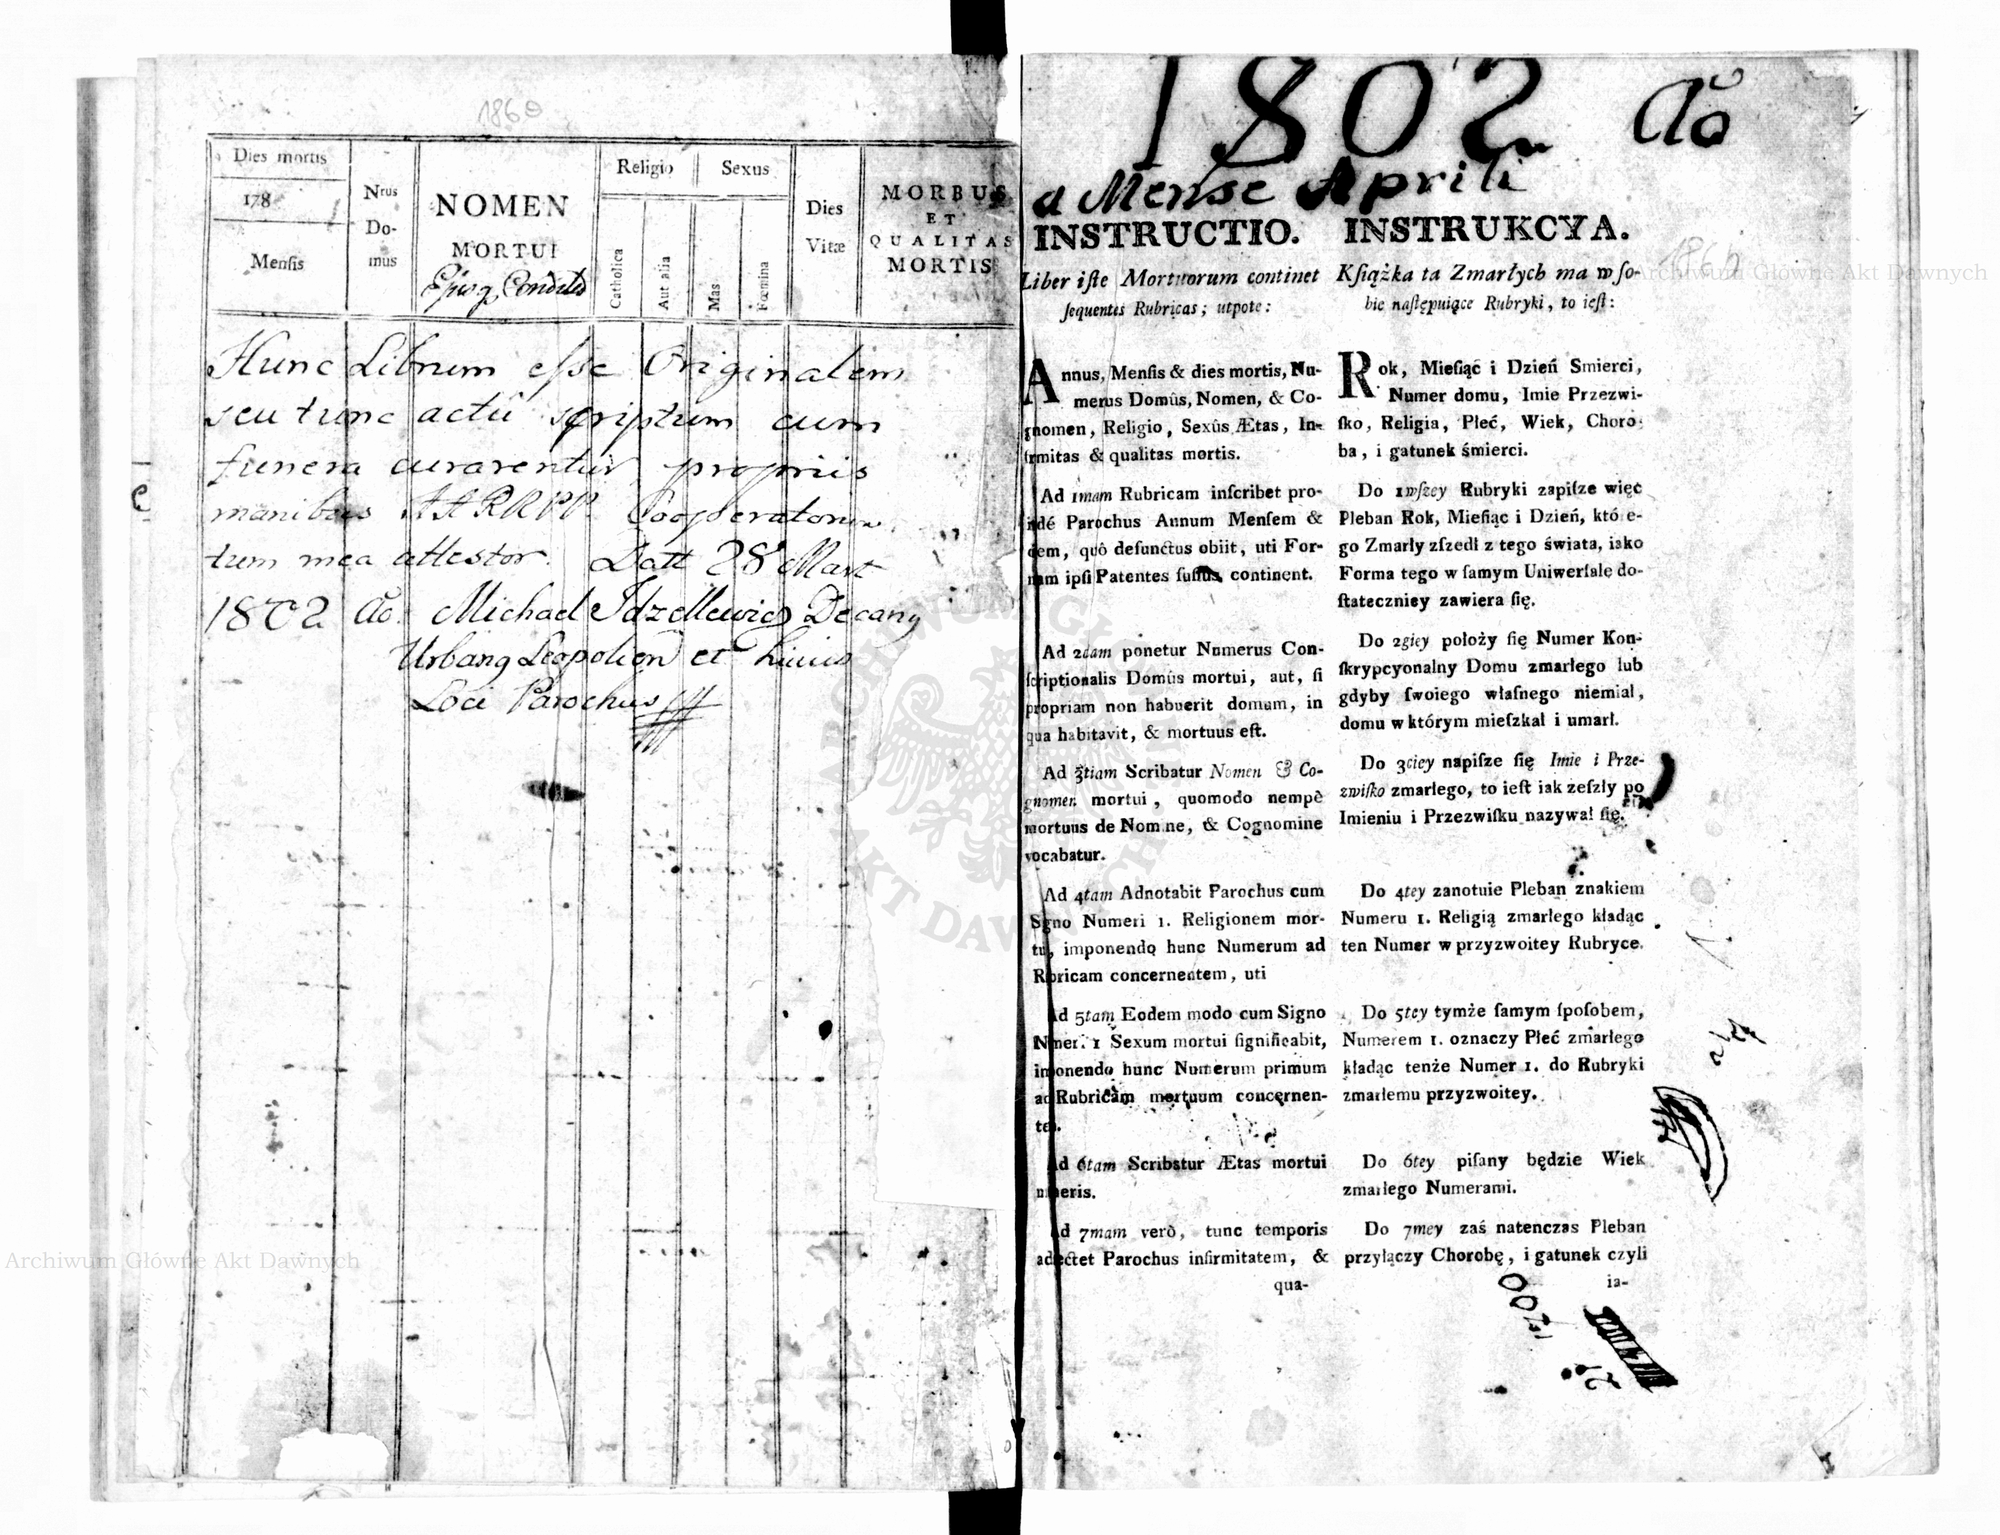 1860
Dies mortis
178
Menſis
Nrus
Do-
mus
NOMEN
MORTUI
Ejusq Conditio
Religio
Catholica
Aut alia
Sexus
Mas
Fœmina
Dies
Vitæ
MORBUS
ET
QUALITAS
MORTIS
Hunc Librum eſse Originalem
seu tunc actu scriptum cum
funera curarentur propriis
manibus AARRPP Cooperatorum
tum mea attestor. Datt 28 Mart
1802 ao. Michael Idzellewicz Decany
Urbany Leopolien et huius
Loci Parochus
1802 ao
a Mense Aprili
INSTRUCTIO.
Liber iſte Mortuorum continet
ſequentes Rubricas; utpote:
Annus, Menſis & dies mortis, Nu-
merus Domûs, Nomen, & Co-
gnomen, Religio, Sexûs Ætas, In-
firmitas & qualitas mortis.
Ad 1mam Rubricam inſcribet pro-
indé Parochus Annum Menſem &
diem, quô defunctus obiit, uti For-
mam ipſi Patentes ſuſius continent.
Ad 2dam ponetur Numerus Con-
ſcriptionalis Domûs mortui, aut, ſi
propriam non habuerit domum, in
qua habitavit, & mortuus eſt.
Ad 3tiam Scribatur Nomen & Co-
gnomen mortui, quomodo nempè
mortuus de Nomine, & Cognomine
vocabatur.
Ad 4tam Adnotabit Parochus cum
Signo Numeri 1. Religionem mor-
tui, imponendo hunc Numerum ad
Rubricam concernentem, uti
Ad 5tam Eodem modo cum Signo
Numer. 1 Sexum mortui ſignificabit,
imponendo hunc Numerum primum
ad Rubricam mortuum concernen-
tem.
Ad 6tam Scribatur Ætas mortui
numeris.
Ad 7mam verò, tunc temporis
adjectet Parochus infirmitatem, &
qua-
INSTRUKCYA.
Kſiążka ta Zmarłych ma w ſo-
bie naſtępuiące Rubryki, to ieſt:
Rok, Mieſiąc i Dzień Smierci,
Numer domu, Imie Przezwi-
ſko, Religia, Płeć, Wiek, Choro-
ba, i gatunek śmierci.
Do 1wſzey Rubryki zapiſze więc
Pleban Rok, Mieſiąc i Dzień, które-
go Zmarły zſzedł z tego świata, iako
Forma tego w ſamym Uniwerſale do-
ſtateczniey zawiera ſię.
Do 2giey położy ſię Numer Kon-
ſkrypcyonalny Domu zmarłego lub
gdyby ſwoiego właſnego niemiał,
domu w którym mieſzkał i umarł.
Do 3ciey napiſze ſię Imie i Prze-
zwiſko zmarłego, to ieſt iak zeſzły po
Imieniu i Przezwiſku nazywał ſię.
Do 4tey zanotuie Pleban znakiem
Numeru 1. Religią zmarłego kładąc
ten Numer w przyzwoitey Rubryce.
Do 5tey tymże ſamym ſpoſobem,
Numerem 1. oznaczy Płeć zmarłego
kładąc tenże Numer 1. do Rubryki
zmarłemu przyzwoitey.
Do 6tey piſany będzie Wiek
zmarłego Numerami.
Do 7mey zaś natenczas Pleban
przyłączy Chorobę, i gatunek czyli
ia-
Archiwum Główne Akt Dawnych
Archiwum Główne Akt Dawnych
ARCHIWUM GŁÓWNE AKT DAWNYCH